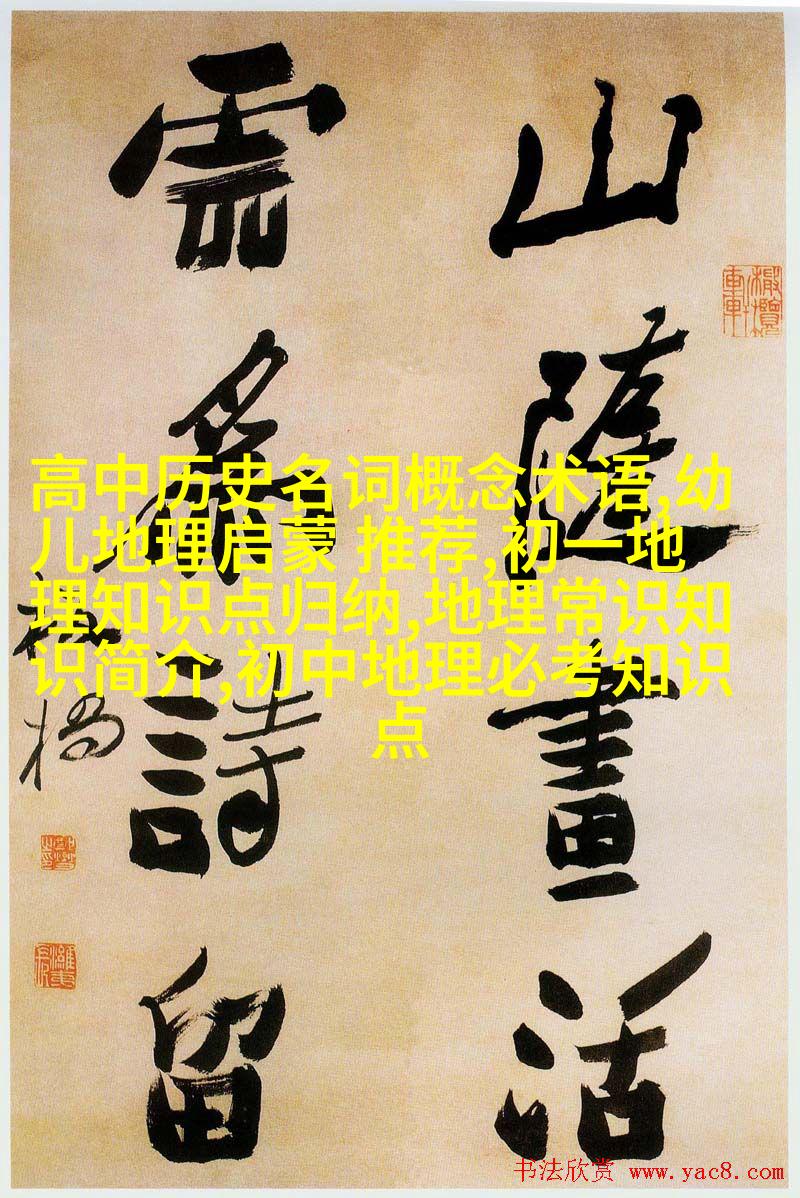 山隨畫活
雲爲詩留
板橋
高中历史名词概念术语,幼
儿地理启蒙 推荐,初一地
理知识点归纳,地理常识知
识简介,初中地理必考知识
点
书法欣赏 www.yac8.com